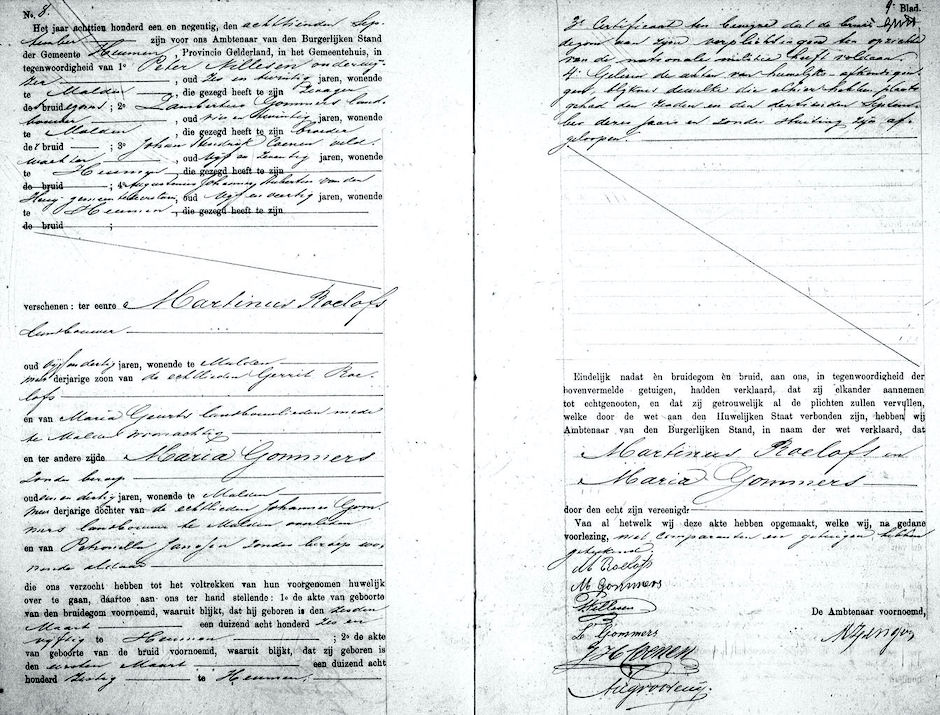 No. 8.
Het jaar achttien honderd een en negentig, den achttienden Sep-
tember zijn voor ons Ambtenaar van den Burgerlijken Stand
der Gemeente Heumen, Provincie Gelderland, in het Gemeentehuis, in
tegenwoordigheid van 1e Peter Nillesen onderwij-
zer, oud zes en twintig jaren, wonende
te Malden, die gezegd heeft te zijn zwager
de bruidegoms; 2e Lambertus Gommers land-
bouwer, oud jaren, wonende
te Malden, die gezegd heeft te zijn broeder
der bruid; 3e Johan Hendrik Coenen veld-
wachter, oud vijf en jaren, wonende
te Heumen, die gezegd heeft te zijn
de bruid; 4e Augustinus Johannes Hubertus van den
oud vijf en veertig jaren, wonende
te Heumen, die gezegd heeft te zijn
de bruid ;
verschenen: ter eenre Martinus Roelofs
landbouwer
oud vijf en dertig jaren, wonende te Malden
meerderjarige zoon van de echtlieden Gerrit Roe-
lofs
en van Maria Geurts landbouwlieden mede
te Malden woonachtig
en ter andere zijde Maria Gommers
zonder beroep
oud een en dertig jaren, wonende te Malden
meerderjarige dochter van de echtlieden Johannes Gom-
mers landbouwer te Malden overleden
en van Petronella Janssen zonder beroep wo-
nende aldaar
die ons verzocht hebben tot het voltrekken van hun voorgenomen huwelijk
over te gaan, daartoe aan ons ter hand stellende: 1e de akte van geboorte
van den bruidegom voornoemd, waaruit blijkt, dat hij geboren is den zesden
Maart een duizend acht honderd zes en
vijftig te Heumen; 2e de akte
van geboorte van de bruid voornoemd, waaruit blijkt, dat zij geboren is
den eersten Maart een duizend acht
honderd zestig te Heumen.
9e Blad.
3e Certificaat ten bewijze dat de bruid-
degom aan zijne verplichtingen ten opzichte
van de nationale militie heeft voldaan.
4e Gelezen de akten van huwelijks-afkondigin-
gen, blijkens dewelke die alhier hebben plaats
gehad den zesden en den dertienden Septem-
ber dezes jaars en zonder stuiting zijn af-
geloopen.
Eindelijk nadat èn bruidegom èn bruid, aan ons, in tegenwoordigheid der
bovenvermelde getuigen, hadden verklaard, dat zij elkander aannemen
tot echtgenooten, en dat zij getrouwelijk al de plichten zullen vervullen,
welke door de wet aan den Huwelijken Staat verbonden zijn, hebben wij
Ambtenaar van den Burgerlijken Stand, in naam der wet verklaard, dat
Martinus Roelofs en
Maria Gommers
door den echt zijn vereenigd.
Van al hetwelk wij deze akte hebben opgemaakt, welke wij, na gedane
voorlezing, met comparanten en getuigen hebben
geteekend
M Roelofs
M Gommers
Nillesen
L Gommers
De Ambtenaar voornoemd,
J H Coenen